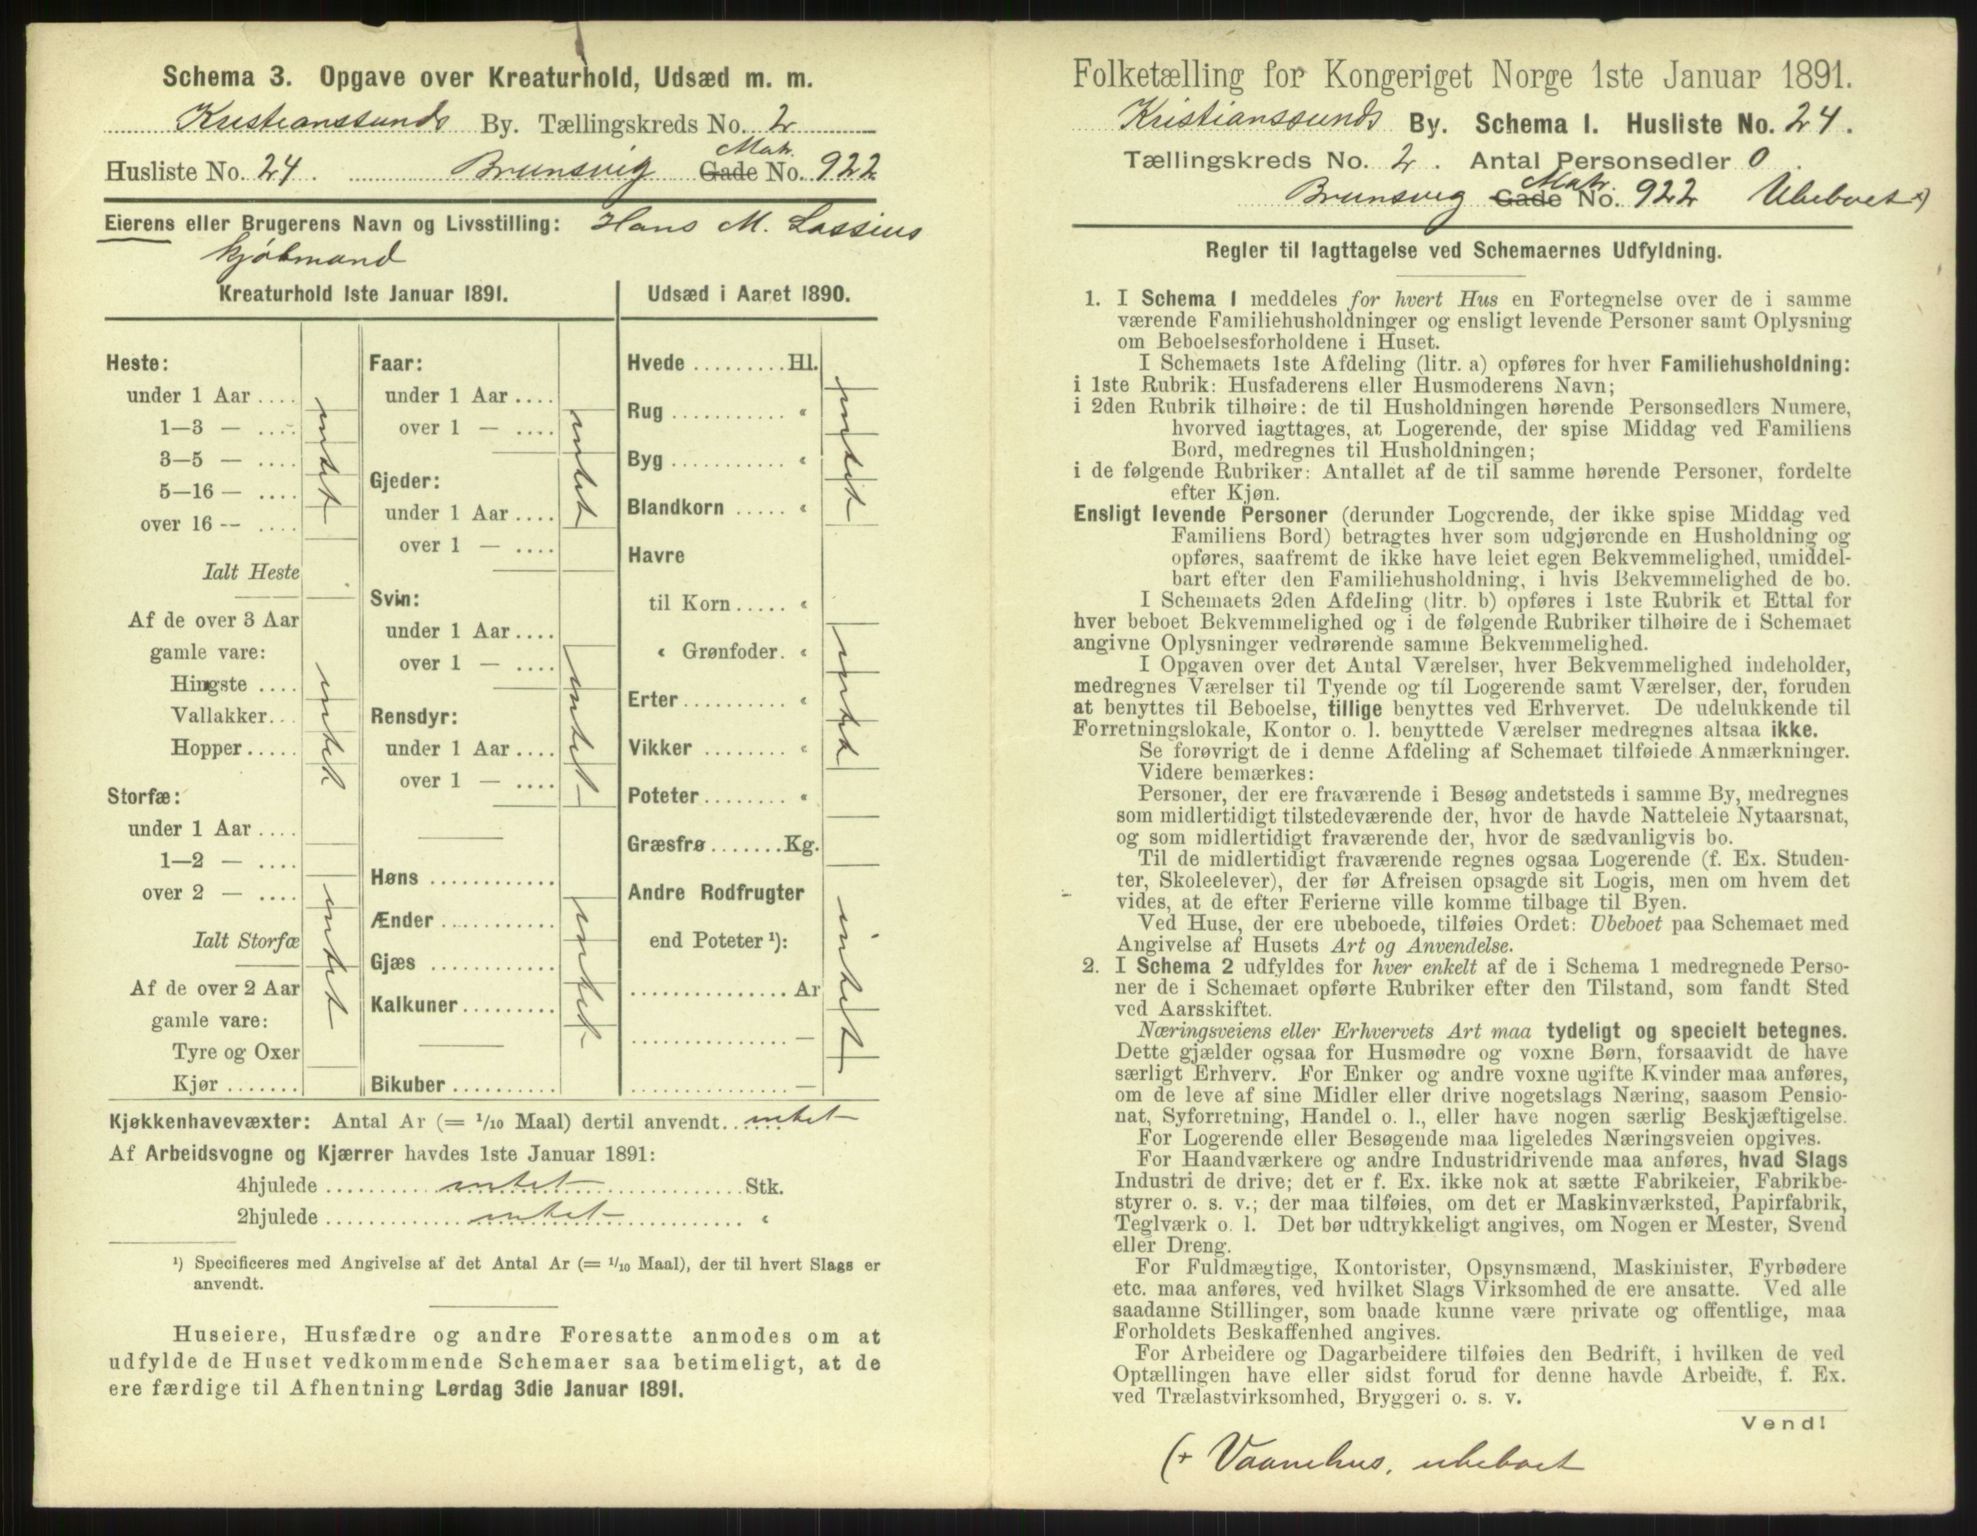 Schema 3. Opgave over Kreaturhold, Udsæd m. m.
Kristianssunds By. Tællingskreds No. 2
Matr.
Husliste No. 24. Brunsvig Gade No. 922
Eierens eller Brugerens Navn og Livsstilling: Hans M. Lossius
kjøbmand
Kreaturhold 1ste Januar 1891.
Heste:
under 1 Aar ....
1—3 — ....
3—5 — ....
5—16 — ....
over 16 -- ....
intet
Ialt Heste
Af de over 3 Aar
gamle vare:
Hingste ....
Vallakker...
Hopper .....
intet
Storfæ:
under 1 Aar ....
1—2 — ....
over 2 — ....
intet
Ialt Storfæ
Af de over 2 Aar
gamle vare:
Tyre og Oxer
Kjør .......
Faar:
under 1 Aar ....
over 1 — ....
intet
Gjeder:
under 1 Aar ....
over 1 — ....
Svin:
under 1 Aar ....
over 1 — ....
intet
Rensdyr:
under 1 Aar ....
over 1 — ....
Høns ............
Ænder ............
Gjæs ............
Kalkuner .........
intet
Bikuber ..........
Udsæd i Aaret 1890.
Hvede ......... Hl.
Rug ........... «
Byg ........... «
Blandkorn ..... «
intet
Havre
til Korn ..... «
« Grønfoder. «
Erter ......... «
Vikker ........ «
intet
Poteter ........ «
Græsfrø ....... Kg.
Andre Rodfrugter
end Poteter ¹):
............... Ar
............... —
............... —
intet
Kjøkkenhavevæxter: Antal Ar (= 1/10 Maal) dertil anvendt. intet
Af Arbeidsvogne og Kjærrer havdes 1ste Januar 1891:
4hjulede ........ intet ........ Stk.
2hjulede ........ intet ........ «
¹) Specificeres med Angivelse af det Antal Ar (= 1/10 Maal), der til hvert Slags er
anvendt.
Huseiere, Husfædre og andre Foresatte anmodes om at
udfylde de Huset vedkommende Schemaer saa betimeligt, at de
ere færdige til Afhentning Lørdag 3die Januar 1891.
Folketælling for Kongeriget Norge 1ste Januar 1891.
Kristianssunds By. Schema I. Husliste No. 24.
Tællingskreds No. 2. Antal Personsedler 0.
Matr.
Brunsvig Gade No. 922 Ubeboet +)
Regler til Iagttagelse ved Schemaernes Udfyldning.
1. I Schema 1 meddeles for hvert Hus en Fortegnelse over de i samme
værende Familiehusholdninger og ensligt levende Personer samt Oplysning
om Beboelsesforholdene i Huset.
I Schemaets 1ste Afdeling (litr. a) opføres for hver Familiehusholdning:
i 1ste Rubrik: Husfaderens eller Husmoderens Navn;
i 2den Rubrik tilhøire: de til Husholdningen hørende Personsedlers Numere,
hvorved iagttages, at Logerende, der spise Middag ved Familiens
Bord, medregnes til Husholdningen;
i de følgende Rubriker: Antallet af de til samme hørende Personer, fordelte
efter Kjøn.
Ensligt levende Personer (derunder Logerende, der ikke spise Middag ved
Familiens Bord) betragtes hver som udgjørende en Husholdning og
opføres, saafremt de ikke have leiet egen Bekvemmelighed, umiddel-
bart efter den Familiehusholdning, i hvis Bekvemmelighed de bo.
I Schemaets 2den Afdeling (litr. b) opføres i 1ste Rubrik et Ettal for
hver beboet Bekvemmelighed og i de følgende Rubriker tilhøire de i Schemaet
angivne Oplysninger vedrørende samme Bekvemmelighed.
I Opgaven over det Antal Værelser, hver Bekvemmelighed indeholder,
medregnes Værelser til Tyende og til Logerende samt Værelser, der, foruden
at benyttes til Beboelse, tillige benyttes ved Erhvervet. De udelukkende til
Forretningslokale, Kontor o. l. benyttede Værelser medregnes altsaa ikke.
Se forøvrigt de i denne Afdeling af Schemaet tilføiede Anmærkninger.
Videre bemærkes:
Personer, der ere fraværende i Besøg andetsteds i samme By, medregnes
som midlertidigt tilstedeværende der, hvor de havde Natteleie Nytaarsnat,
og som midlertidigt fraværende der, hvor de sædvanligvis bo.
Til de midlertidigt fraværende regnes ogsaa Logerende (f. Ex. Studen-
ter, Skoleelever), der før Afreisen opsagde sit Logis, men om hvem det
vides, at de efter Ferierne ville komme tilbage til Byen.
Ved Huse, der ere ubeboede, tilføies Ordet: Ubeboet paa Schemaet med
Angivelse af Husets Art og Anvendelse.
2. I Schema 2 udfyldes for hver enkelt af de i Schema 1 medregnede Perso-
ner de i Schemaet opførte Rubriker efter den Tilstand, som fandt Sted
ved Aarsskiftet.
Næringsveiens eller Erhvervets Art maa tydeligt og specielt betegnes.
Dette gjælder ogsaa for Husmødre og voxne Børn, forsaavidt de have
særligt Erhverv. For Enker og andre voxne ugifte Kvinder maa anføres,
om de leve af sine Midler eller drive nogetslags Næring, saasom Pensio-
nat, Syforretning, Handel o. l., eller have nogen særlig Beskjæftigelse.
For Logerende eller Besøgende maa ligeledes Næringsveien opgives.
For Haandværkere og andre Industridrivende maa anføres, hvad Slags
Industri de drive; det er f. Ex. ikke nok at sætte Fabrikeier, Fabrikbe-
styrer o. s. v.; der maa tilføies, om det er Maskinværksted, Papirfabrik,
Teglværk o. l. Det bør udtrykkeligt angives, om Nogen er Mester, Svend
eller Dreng.
For Fuldmægtige, Kontorister, Opsynsmænd, Maskinister, Fyrbødere
etc. maa anføres, ved hvilket Slags Virksomhed de ere ansatte. Ved alle
saadanne Stillinger, som baade kunne være private og offentlige, maa
Forholdets Beskaffenhed angives.
For Arbeidere og Dagarbeidere tilføies den Bedrift, i hvilken de ved
Optællingen have eller sidst forud for denne havde Arbeide, f. Ex.
ved Trælastvirksomhed, Bryggeri o. s. v.
Vend!
(+ Vaanehus, ubeboet